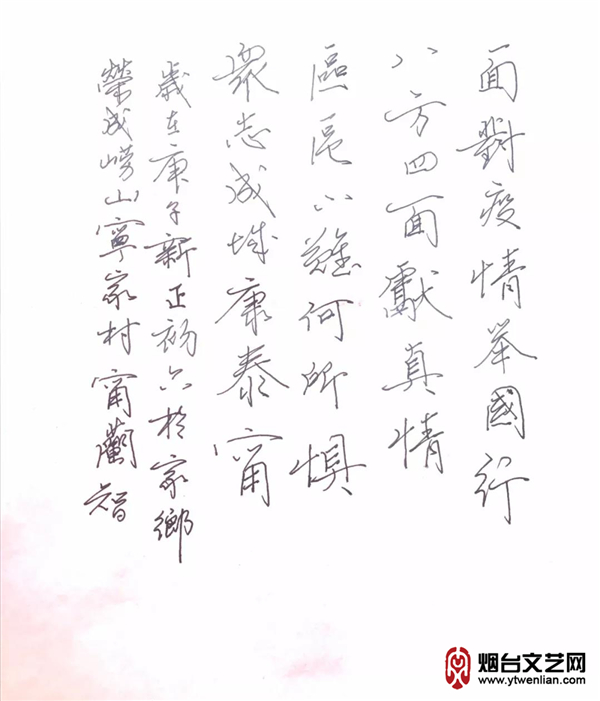 面對疫情举國行
八方四面獻真情
區區小難何所懼
衆志成城康泰甯
歲在庚子新正初六於家鄉
榮成嶗山寧家村甯蘭智
烟台文艺网
www.ytwenlian.com